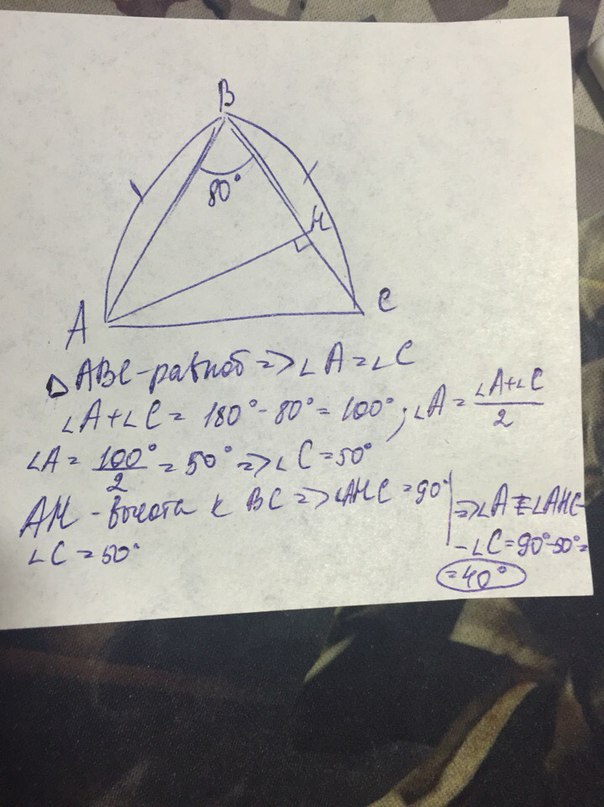 B
80°
М
A
C
△ ABC - равноб => ∠A = ∠C
∠A + ∠C = 180° - 80° = 100° ; ∠A = (∠A + ∠C) / 2
∠A = 100° / 2 = 50° => ∠C = 50°
АМ - высота к BC => ∠АМС = 90° | => ∠A = ∠АМС -
∠C = 50° | - ∠C = 90° - 50° =
= 40°